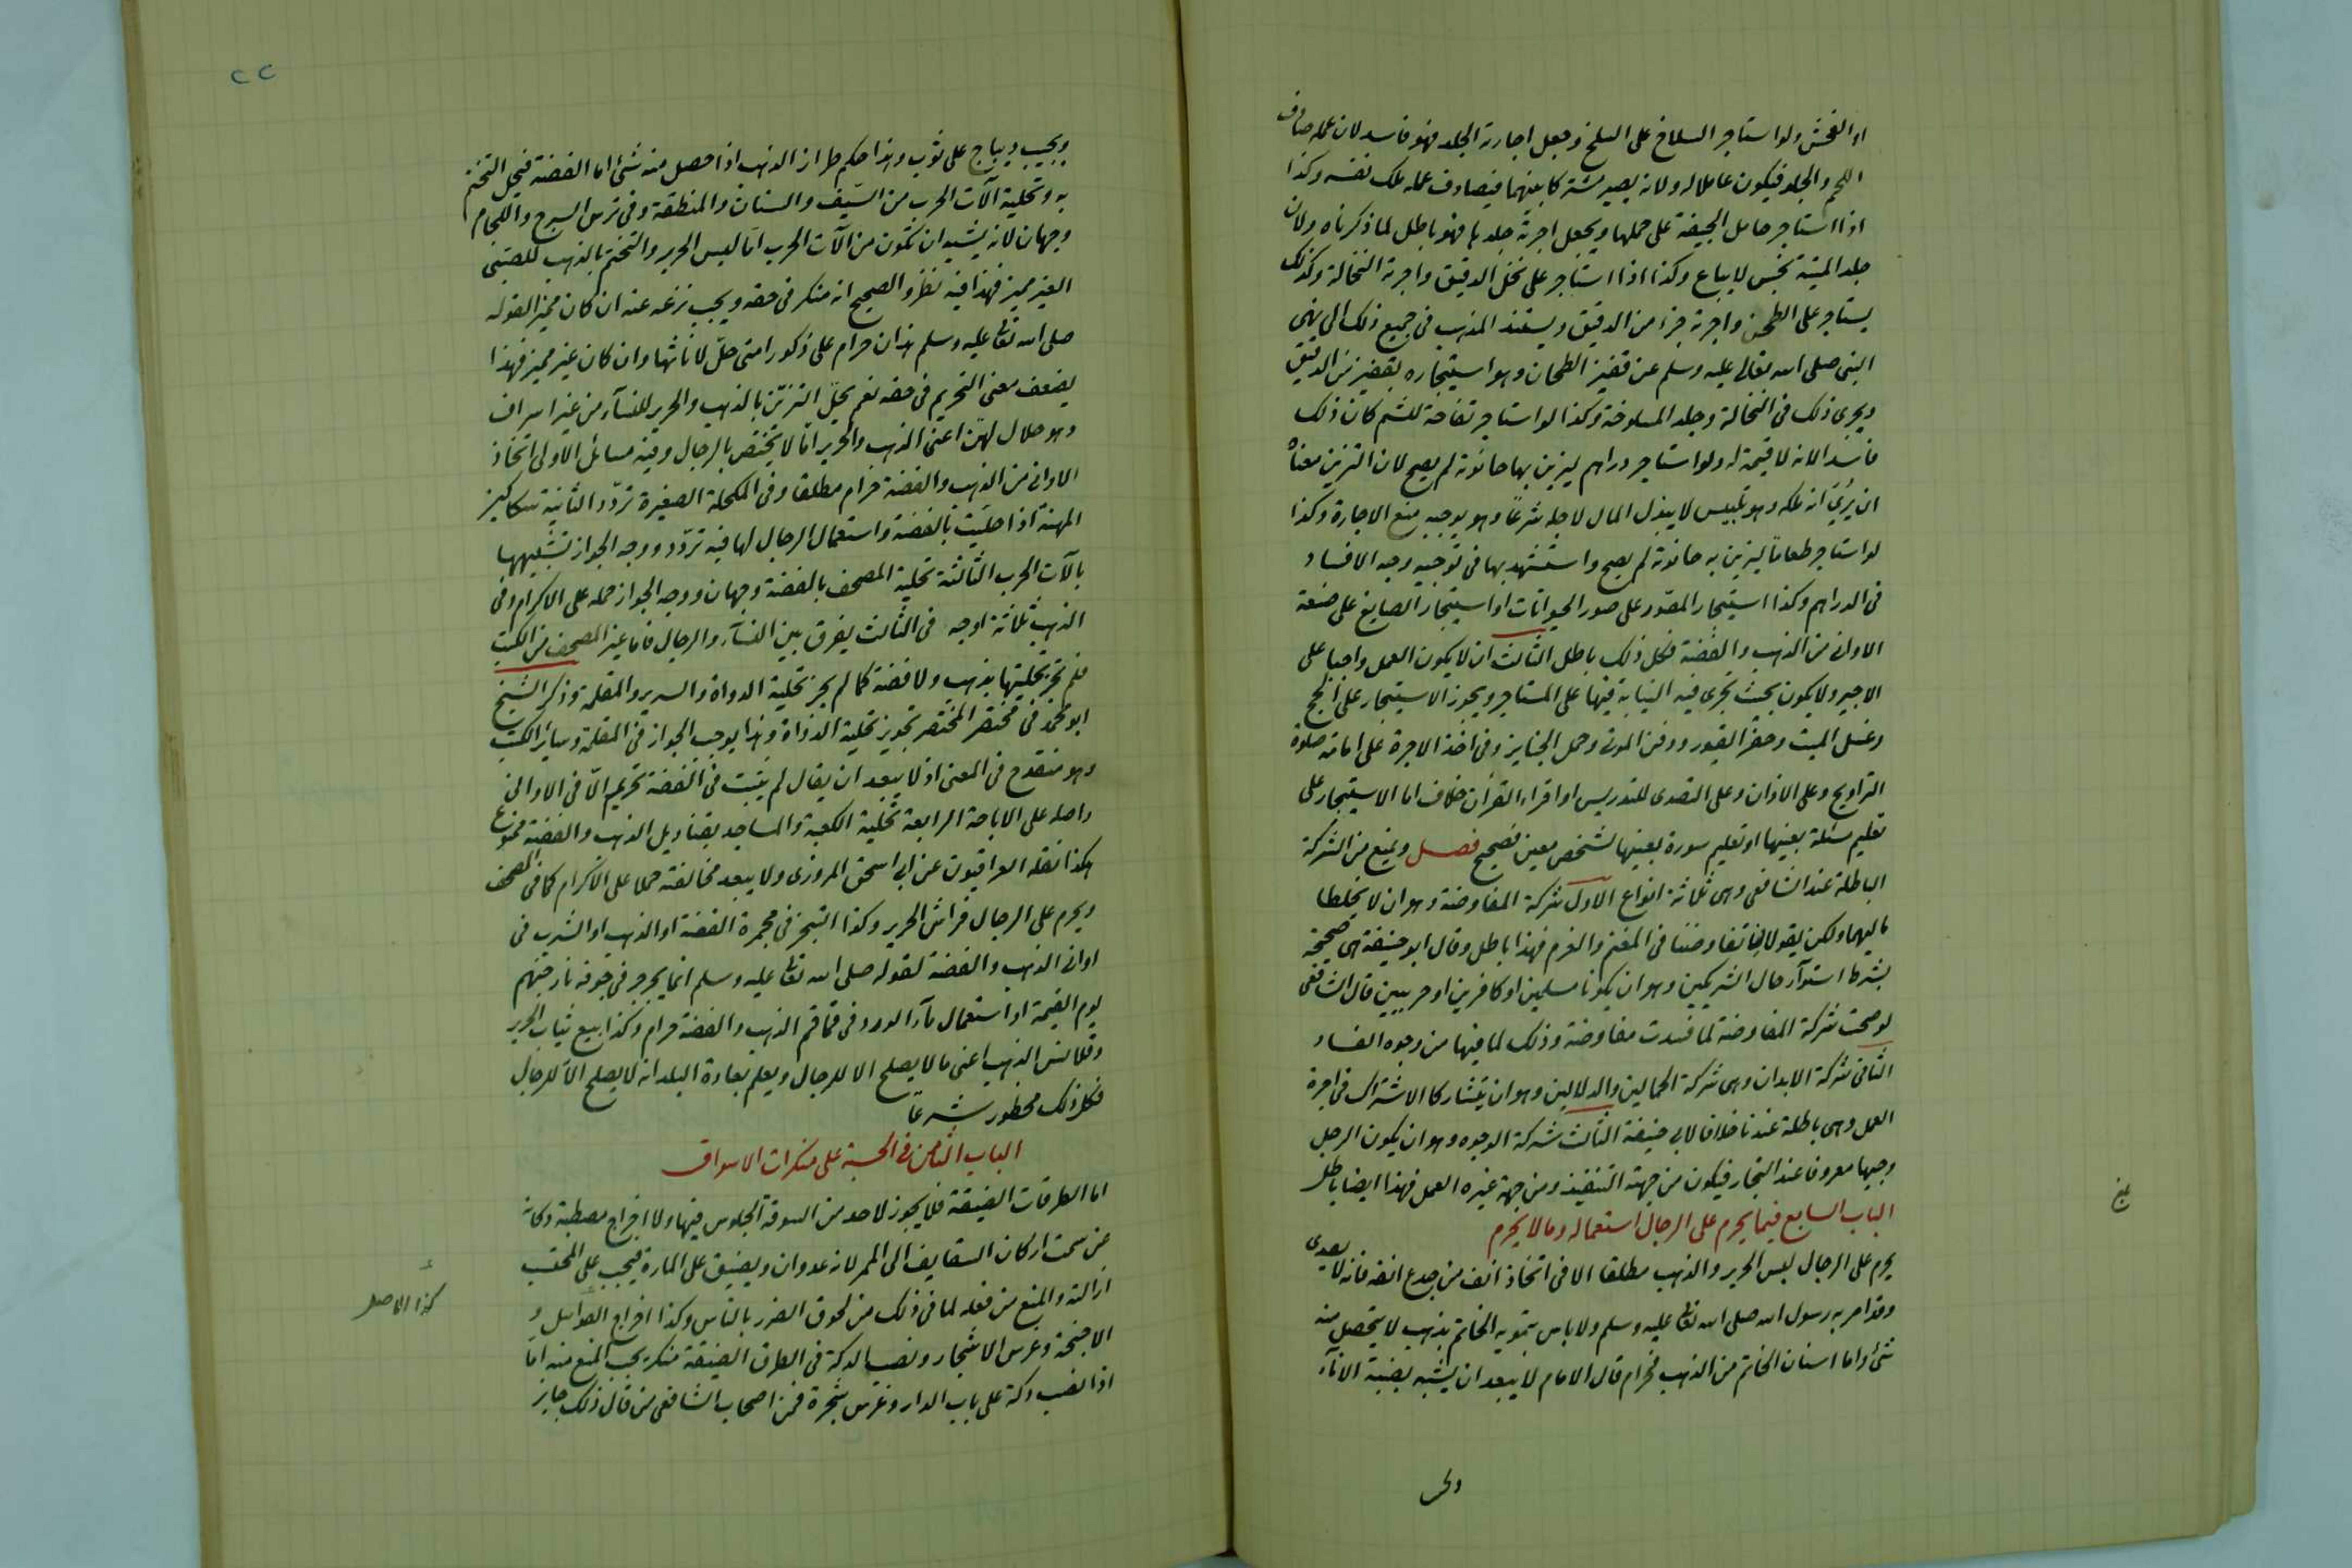 او الفحش ولو استاجر السلاخ على السلخ وجعل اجارته الجلد فهو فاسد لان عمله صادف
اللحم والجلد فيكون عاملا له ولانه يصير مشتركا بينهما فيصادف عمله ملك نفسه وكذا
اذا استاجر حامل الجيفة على حملها ويجعل اجرته جلدها فهو باطل لما ذكرناه ولان
جلد الميتة نجس لا يباع وكذا اذا استاجر على نخل الدقيق واجرته النخالة وكذلك
يستاجر على الطحن واجرته جزء من الدقيق ويستند المذهب في جميع ذلك الى نهي
النبي صلى الله تعالى عليه وسلم عن قفيز الطحان وهو استيجاره بقفيز من الدقيق
ويجرى ذلك في النخالة وجلد المسلوخة وكذا لو استاجر تفاحة للشم كان ذلك
فاسدا لانه لا قيمة له ولو استاجر دراهم ليزين بها حانوته لم يصح لان التزيين معناه
ان يرى انه ملكه وهو تلبيس لا يبذل المال لاجله شرعا وهو يوجب منع الاجارة وكذا
لو استاجر طعاما ليزين به حانوته لم يصح واستشهد بها في توجيه وجه الافساد
في الدراهم وكذا استيجار المصور على صور الحيوانات او استيجار الصايغ على صنعة
الاوانى من الذهب والفضة فكل ذلك باطل الثالث ان لا يكون العمل واجبا على
الاجير ولا يكون بحيث تجرى فيه النيابة فيها على المستاجر ويجوز الاستيجار على الحج
وغسل الميت وحفر القبور ودفن الموتى وحمل الجنايز وفى اخذ الاجرة على امامة صلوة
التراويح وعلى الاذان وعلى التصدى للتدريس او اقراء القرآن خلاف اما الاستيجار على
تعليم مسئلة بعينها او تعليم سورة بعينها لشخص معين فصحيح فصل ويمنع من الشركة
الباطلة عند الشافعى وهى ثلاثة انواع الاول شركة المفاوضة وهو ان لا يخلطا
ماليهما ولكن يقولا تفاوضنا في المغنم والغرم فهذا باطل وقال ابو حنيفة هى صحيحة
بشرط استوآء حال الشريكين وهو ان يكونا مسلمين او كافرين او حربيين قال الشافعى
لو صحت شركة المفاوضة لما فسدت مفاوضة وذلك لما فيها من وجوه الفساد
الثانى شركة الابدان وهى شركة الحمالين والدلالين وهو ان يتشاركا الاشتراك فى اجرة
العمل وهى باطلة عندنا خلافا لابى حنيفة الثالث شركة الوجوه وهو ان يكون الرجل
وجيها معروفا عند التجار فيكون من جهته التنفيذ ومن جهة غيره العمل فهذا ايضا باطل
الباب السابع فيما يحرم على الرجال استعماله وما لا يحرم
يحرم على الرجال لبس الحرير والذهب مطلقا الا فى اتخاذ انف من جدع انفه فانه لا يصدى
وقد امر به رسول الله صلى الله تعا عليه وسلم ولا باس بتمويه الخاتم بذهب لا يتحصل منه
شئ واما اسنان الخاتم من الذهب فحرام قال الامام لا يبعد ان يشبه بضبة الانآء
٢٢
ويجيب ديباج على ثوب وهذا حكم طراز الذهب اذا حصل منه شئ اما الفضة فيحل التختم
به وتحلية آلات الحرب من السيف والسنان والمنطقة وفى ترس السرج واللجام
وجهان لانه يشبه ان تكون من آلات الحرب اما لبس الحرير والتختم بالذهب للصبى
الغير مميز فهذا فيه نظر والصحيح انه منكر فى حقه ويجب نزعه عنه ان كان مميزا لقوله
صلى الله تعا عليه وسلم هذان حرام على ذكور امتى حل لاناثها وان كان غير مميز فهذا
يضعف معنى التحريم فى حقه نعم يحل التزين بالذهب والحرير للنسآء من غير اسراف
وهو حلال لهن اعنى الذهب والحرير اما لا يختص بالرجال وفيه مسائل الاولى اتخاذ
الاوانى من الذهب والفضة حرام مطلقا وفى المكحلة الصغيرة تردد الثانية سكاكين
المهنة اذا حليت بالفضة واستعمال الرجال لها فيه تردد ووجه الجواز تشبيهها
بالآت الحرب الثالثة تحلية المصحف بالفضة وجهان ووجه الجواز حمله على الاكرام وفى
الذهب ثلاثة اوجه فى الثالث يفرق بين النسآء والرجال فاما غير المصحف من الكتب
فلم يجز تحليتها بذهب ولا فضة كما لم يجز تحلية الدواة والسرير والمقلمة وذكر الشيخ
ابو محمد فى مختصر المختصر تجويز تحلية الدواة وهذا يوجب الجواز فى المقلمة وسائر الكتب
وهو منقدح فى المعنى اذ لا يبعد ان يقال لم يثبت فى الفضة تحريم الا فى الاوانى
واصله على الاباحة الرابعة تحلية الكعبة والمساجد بقناديل الذهب والفضة ممنوع
هكذا نقله العراقيون عن ابى اسحق المروزى ولا يبعد مخالفته حملا على الاكرام كما فى المصحف
ويحرم على الرجال فراش الحرير وكذا التبخر فى مجمرة الفضة او الذهب او الشرب فى
اوانى الذهب والفضة لقوله صلى الله تعا عليه وسلم انما يجرجر فى جوفه نار جهنم
يوم القيمة او استعمال مآء الورد فى قماقم الذهب والفضة حرام وكذا بيع ثياب الحرير
وقلانس الذهب اعنى ما لا يصلح الا للرجال ويعلم بعادة البلد انه لا يصلح الا للرجال
فكل ذلك محظور شرعا
الباب الثامن فى الحسبة على منكرات الاسواق
اما الطرقات الضيقة فلا يجوز لاحد من السوقة الجلوس فيها ولا اخراج مصطبة دكانه
عن سمت اركان السقايف الى الممر لانه عدوان ويضيق على المارة فيجب على المحتسب
ازالته والمنع من فعله لما فى ذلك من لحوق الضرر بالناس وكذا اخراج الفواصل و
الاجنحة وغرس الاشجار ونصب الدكة فى الطرق الضيقة منكر يجب المنع منه اما
اذا نصب دكة على باب الدار وغرس شجرة فمن اصحاب الشافعى من قال ذلك جايز
كذا الاصل